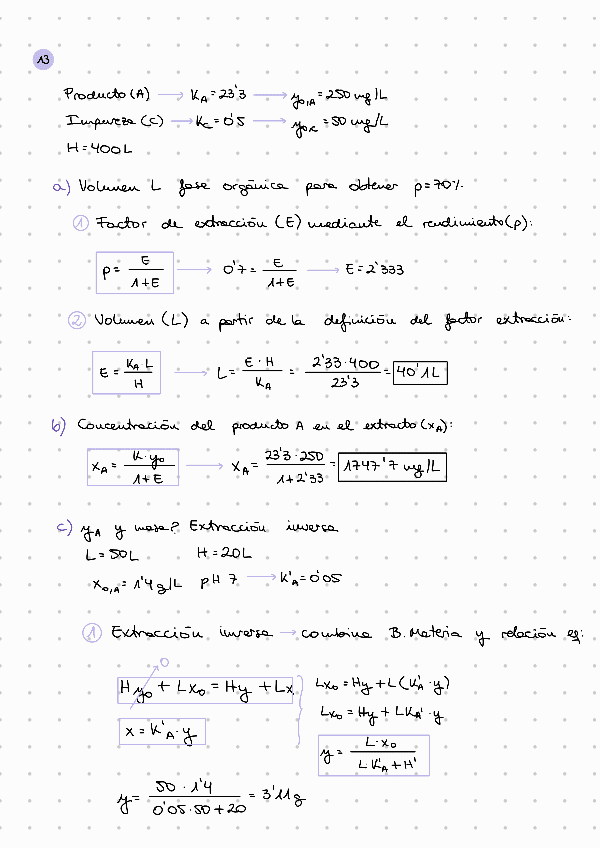 13
Producto (A) → K_A = 23'3 → y_{0,A} = 250 mg/L
Impureza (C) → K_C = 0'5 → y_{0,C} = 50 mg/L
H = 400 L
a) Volumen L fase orgánica para obtener ρ = 70%.
① Factor de extracción (E) mediante el rendimiento (ρ):
ρ = E / (1+E) → 0'7 = E / (1+E) → E = 2'333
② Volumen (L) a partir de la definición del factor extracción:
E = K_A·L / H → L = E·H / K_A = 2'33·400 / 23'3 = 40'1 L
b) Concentración del producto A en el extracto (x_A):
x_A = K·y_0 / (1+E) → x_A = 23'3·250 / (1+2'33) = 1747'7 mg/L
c) y_A y masa? Extracción inversa
L = 50 L H = 20 L
x_{0,A} = 1'4 g/L pH 7 → K'_A = 0'05
① Extracción inversa → combina B. Materia y relación eq:
0
Hy_0 + Lx_0 = Hy + Lx Lx_0 = Hy + L(K'_A·y)
Lx_0 = Hy + LK_A'·y
x = K'_A·y
y = L·x_0 / (LK'_A + H')
y = 50·1'4 / (0'05·50+20) = 3'11 g